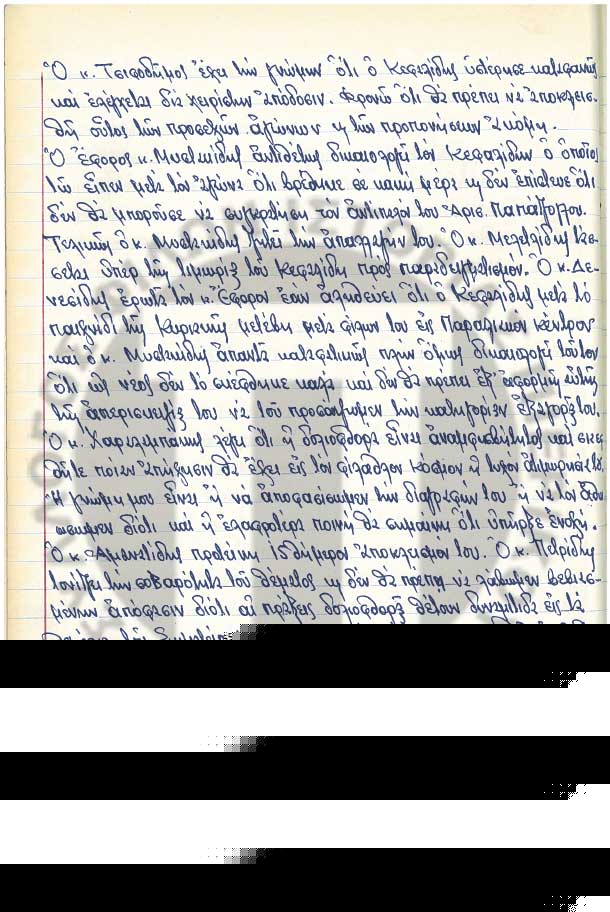 Ὁ κ. Τσιποδῆμος ἔχει τὴν γνώμην ὅτι ὁ Κεφαλίδης ὑστέρησε καταφανῶς
καὶ ἐλέγχεται διὰ χειρίστην ἀπόδοσιν. Φρονῶ ὅτι θὰ πρέπει νὰ ἀποκλεισ-
θῇ οὗτος τῶν προσεχῶν ἀγώνων κ τῶν προπονήσεων ἀκόμη.
Ὁ Ἔφορος κ. Μυστακίδης ἀντιθέτως δικαιολογεῖ τὸν Κεφαλίδην ὁ ὁποῖος
τῷ εἶπεν μετὰ τὸν ἀγῶνα ὅτι βρέθηκε σὲ κακὴ μέρα κ δὲν ἐπίστευε ὅτι
δὲν θὰ μποροῦσε νὰ συγκρατήση τὸν ἀντίπαλόν του Ἀρισ. Παπάζογλου.
Τελικῶς ὁ κ. Μυστακίδης ζητεῖ τὴν ἀπαλλαγήν του. Ὁ κ. Μελισίδης τάσ-
σεται ὑπὲρ τῆς τιμωρίας τοῦ Κεφαλίδη πρὸς παραδειγματισμόν. Ὁ κ. Δε-
νεσίδης ἐρωτᾶ τὸν κ. Ἔφορον ἐὰν ἀληθεύει ὅτι ὁ Κεφαλίδης μετὰ τὸ
παιχνίδι τῆς Κυριακῆς μετέβη μετὰ φίλων του εἰς Παραλιακὸν κέντρον
καὶ ὁ κ. Μυστακίδης ἀπαντᾶ καταφατικῶς πλὴν ὅμως δικαιολογεῖ τοῦτον
ὅτι ὡς νέος δὲν τὸ σκέφθηκε καλὰ καὶ δὲν θὰ πρέπει ἐξ ἀφορμῆς αὐτῆς
τῆς ἀπερισκεψίας του νὰ τοῦ προσάψωμεν τὴν κατηγορίαν ἐξαγορᾶς του.
Ὁ κ. Χαραλαμπάκης λέγει ὅτι ἡ δολιοφθορὰ εἶναι ἀναμφισβήτητος καὶ σκε-
θῆτε ποίαν ἀπήχησιν θὰ ἔχει εἰς τὸν φίλαθλον κόσμον ἡ τυχὸν ἀτιμωρησία του.
Ἡ γνώμη μου εἶναι ἢ νὰ ἀποφασίσωμεν τὴν διαγραφήν του ἢ νὰ τὸν ἀθω-
ώσωμεν διότι καὶ ἡ ἐλαφροτέρα ποινὴ θὰ σημαίνη ὅτι ὑπῆρξε ἐνοχή.
Ὁ κ. Ἀμανατίδης προτείνη 15δήμερον ἀποκλεισμόν του. Ὁ κ. Πετρίδης
τονίζει τὴν σοβαρότητα τοῦ θέματος κ δὲν θὰ πρέπη νὰ λάβωμεν βεβιασ-
μένην ἀπόφασιν διότι αἱ πράξεις δολιοφθορᾶς θέτουν δυναμίτιδα εἰς τὰ